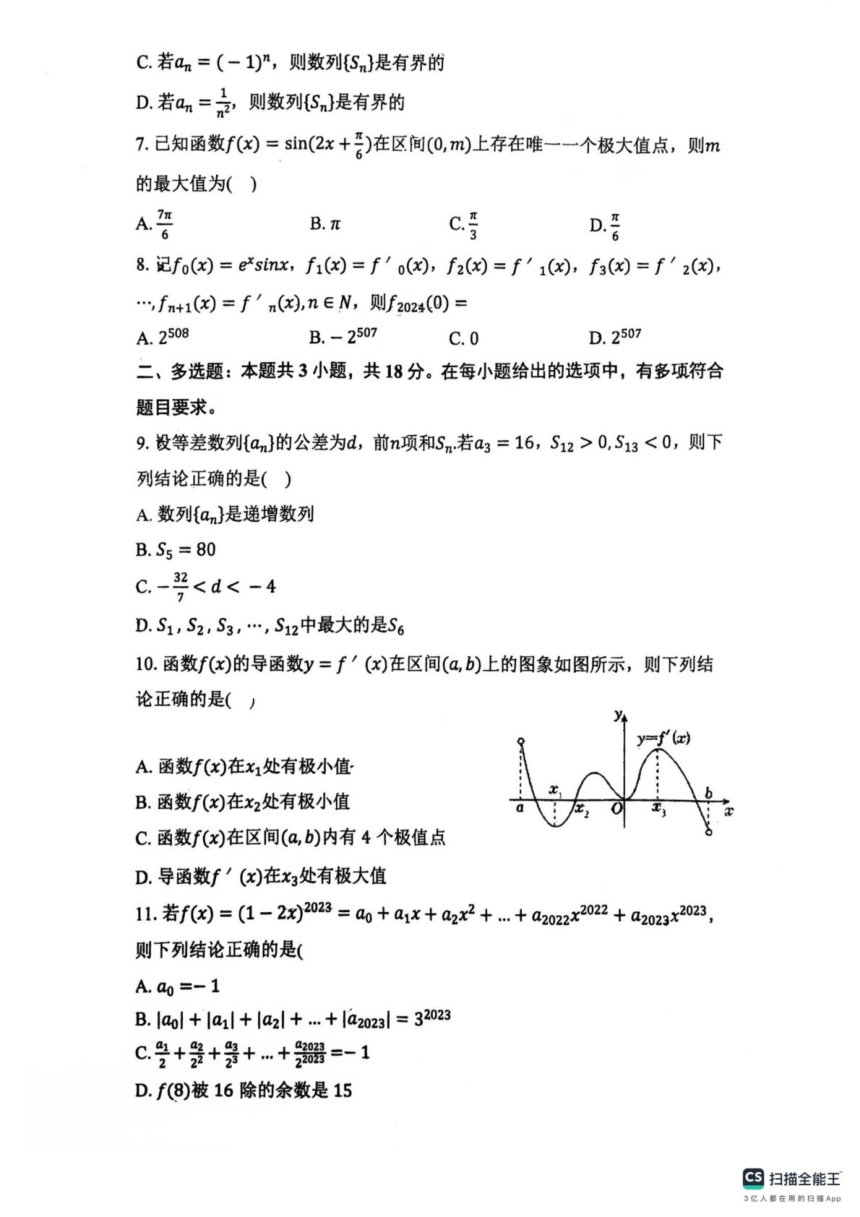 C. 若aₙ = (－1)ⁿ，则数列{Sₙ}是有界的
D. 若aₙ = 1/n²，则数列{Sₙ}是有界的
7. 已知函数f(x) = sin(2x + π/6)在区间(0, m)上存在唯一一个极大值点，则m
的最大值为( )
A. 7π/6 B. π C. π/3 D. π/6
8. 记f₀(x) = eˣsinx，f₁(x) = f′₀(x)，f₂(x) = f′₁(x)，f₃(x) = f′₂(x)，
⋯,fₙ₊₁(x) = f′ₙ(x),n ∈ N，则f₂₀₂₄(0) =
A. 2⁵⁰⁸ B. －2⁵⁰⁷ C. 0 D. 2⁵⁰⁷
二、多选题：本题共 3 小题，共 18 分。在每小题给出的选项中，有多项符合
题目要求。
9. 设等差数列{aₙ}的公差为d，前n项和Sₙ.若a₃ = 16，S₁₂ > 0, S₁₃ < 0，则下
列结论正确的是( )
A. 数列{aₙ}是递增数列
B. S₅ = 80
C. －32/7 < d < －4
D. S₁, S₂, S₃, ⋯, S₁₂中最大的是S₆
10. 函数f(x)的导函数y = f′(x)在区间(a, b)上的图象如图所示，则下列结
论正确的是(
y
y=f′(x)
A. 函数f(x)在x₁处有极小值
B. 函数f(x)在x₂处有极小值
a x₁ x₂ O x₃ b x
C. 函数f(x)在区间(a, b)内有 4 个极值点
D. 导函数f′(x)在x₃处有极大值
11. 若f(x) = (1－2x)²⁰²³ = a₀ + a₁x + a₂x² + ... + a₂₀₂₂x²⁰²² + a₂₀₂₃x²⁰²³，
则下列结论正确的是(
A. a₀ =－1
B. |a₀| + |a₁| + |a₂| + ... + |a₂₀₂₃| = 3²⁰²³
C. a₁/2 + a₂/2² + a₃/2³ + ... + a₂₀₂₃/2²⁰²³ =－1
D. f(8)被 16 除的余数是 15
CS 扫描全能王
3亿人都在用的扫描App